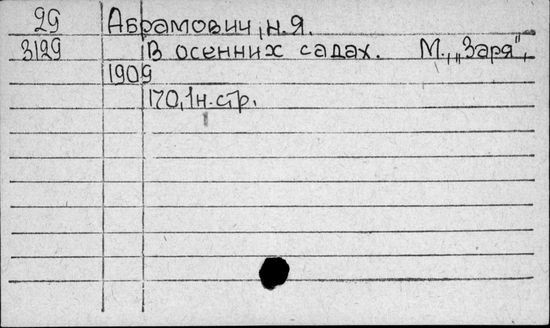 29 Абрамович, Н.Я.
3129 В осенних садах. М., „Заря",
1909
170,1н.стр.